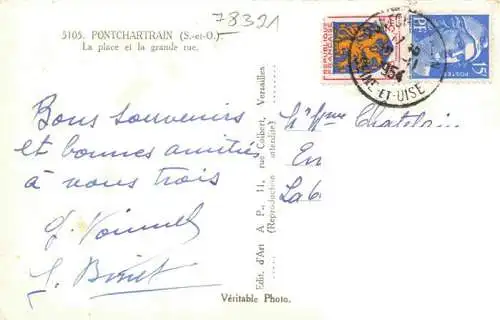 78321
5105. PONTCHARTRAIN (S.-et-O.)
La place et la grande rue.
Bons souvenirs
et bonnes amitiés
à vous trois
Edit. d'Art A. P., 11, rue Colbert, Versailles
(Reproduction interdite)
REPUBLIQUE FRANÇAISE
POSTES
15F
1954
ET-OISE
Chatelain
En
La
Véritable Photo.